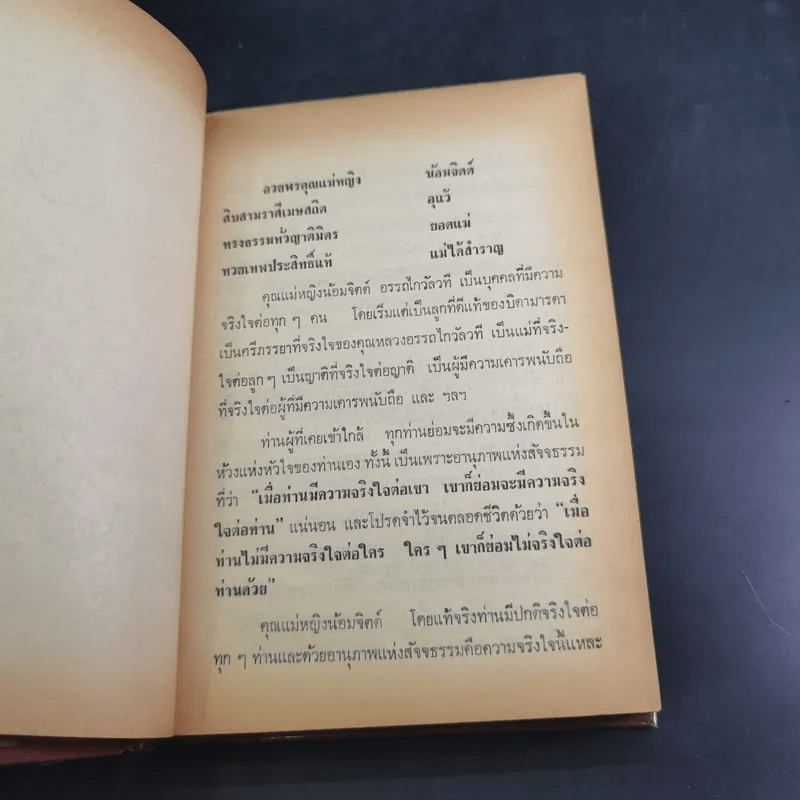 อวยพรคุณแม่หญิง น้อมจิตต์
สิบสามราศีเมษสถิต อุแว้
ทรงธรรมทวิญาติมิตร ยอดแม่
ทวยเทพประสิทธิ์แท้ แม่ได้สำราญ
คุณแม่หญิงน้อมจิตต์ อรรถไกวัลวที เป็นบุคคลที่มีความ
จริงใจต่อทุก ๆ คน โดยเริ่มแต่เป็นลูกที่ดีแท้ของบิดามารดา
เป็นศรีภรรยาที่จริงใจของคุณหลวงอรรถไกวัลวที เป็นแม่ที่จริง-
ใจต่อลูก ๆ เป็นญาติที่จริงใจต่อญาติ เป็นผู้มีความเคารพนับถือ
ที่จริงใจต่อผู้ที่มีความเคารพนับถือ และ ฯลฯ
ท่านผู้ที่เคยเข้าใกล้ ทุกท่านย่อมจะมีความซึ้งเกิดขึ้นใน
ห้วงแห่งหัวใจของท่านเอง ทั้งนี้ เป็นเพราะอานุภาพแห่งสัจจธรรม
ที่ว่า “เมื่อท่านมีความจริงใจต่อเขา เขาก็ย่อมจะมีความจริง
ใจต่อท่าน” แน่นอน และโปรดจำไว้จนตลอดชีวิตด้วยว่า “เมื่อ
ท่านไม่มีความจริงใจต่อใคร ใคร ๆ เขาก็ย่อมไม่จริงใจต่อ
ท่านด้วย”
คุณแม่หญิงน้อมจิตต์ โดยแท้จริงท่านมีปกติจริงใจต่อ
ทุก ๆ ท่านและด้วยอานุภาพแห่งสัจจธรรมคือความจริงใจนี้แหละ